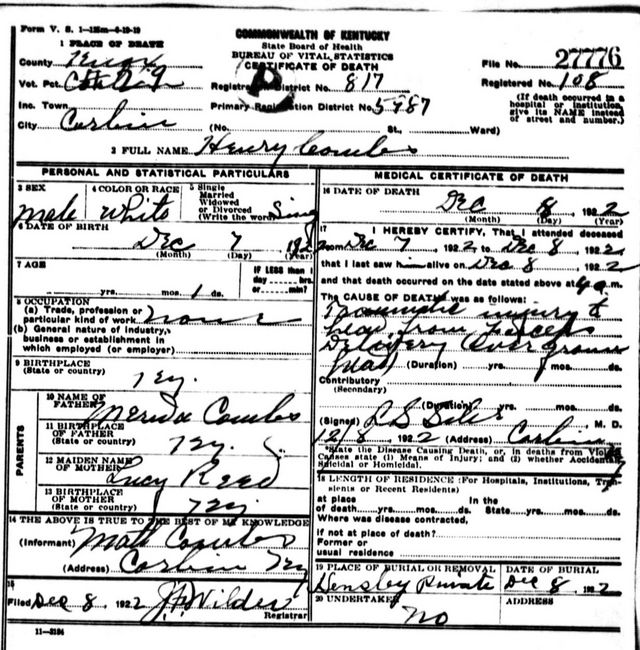 Form V. S. 1—12m—6-19-19
COMMONWEALTH OF KENTUCKY
State Board of Health
BUREAU OF VITAL STATISTICS
CERTIFICATE OF DEATH
1 PLACE OF DEATH
County Knox
Vot. Pct.
Inc. Town
City Corbin
File No. 27776
Registration District No. 817
Registered No. 108
Primary Registration District No. 5987
(If death occurred in a hospital or institution, give its NAME instead of street and number.)
(No. St., Ward)
2 FULL NAME Henry Combs
PERSONAL AND STATISTICAL PARTICULARS
3 SEX Male
4 COLOR OR RACE White
5 Single Married Widowed or Divorced (Write the word) Sing
6 DATE OF BIRTH
Dec 7 192
(Month) (Day) (Year)
7 AGE
yrs. mos. 1 ds.
IF LESS than 1 day hrs. or min.?
8 OCCUPATION
(a) Trade, profession or particular kind of work none
(b) General nature of industry, business or establishment in which employed (or employer)
9 BIRTHPLACE
(State or country) Ky.
PARENTS
10 NAME OF FATHER Combs
11 BIRTHPLACE OF FATHER
(State or country) Ky.
12 MAIDEN NAME OF MOTHER Lucy Reed
13 BIRTHPLACE OF MOTHER
(State or country) Ky
14 THE ABOVE IS TRUE TO THE BEST OF MY KNOWLEDGE
(Informant) Matt Combs
(Address) Corbin Ky
15
Filed Dec 8, 1922 J Wilder
Registrar
11—3184
MEDICAL CERTIFICATE OF DEATH
16 DATE OF DEATH
Dec 8, 1922
(Month) (Day) (Year)
17 I HEREBY CERTIFY, That I attended deceased
from Dec 7, 1922, to Dec 8, 1922,
that I last saw him alive on Dec 8, 1922
and that death occurred on the date stated above at 4 a.m.
The CAUSE OF DEATH was as follows:
Traumatic injury to
head from forceps
Delivery over grown
(Duration) yrs. mos. ds.
Contributory
(Secondary)
(Duration) yrs. mos. ds.
(Signed) M. D.
12/8, 1922 (Address) Corbin
*State the Disease Causing Death, or, in deaths from Violent Causes state (1) Means of Injury; and (2) whether Accidental, Suicidal or Homicidal.
18 LENGTH OF RESIDENCE (For Hospitals, Institutions, Transients or Recent Residents)
at place of death yrs. mos. ds. In the State yrs. mos. ds.
Where was disease contracted,
if not at place of death?
Former or usual residence
19 PLACE OF BURIAL OR REMOVAL Hensley Private
DATE OF BURIAL Dec 8, 1922
20 UNDERTAKER No
ADDRESS